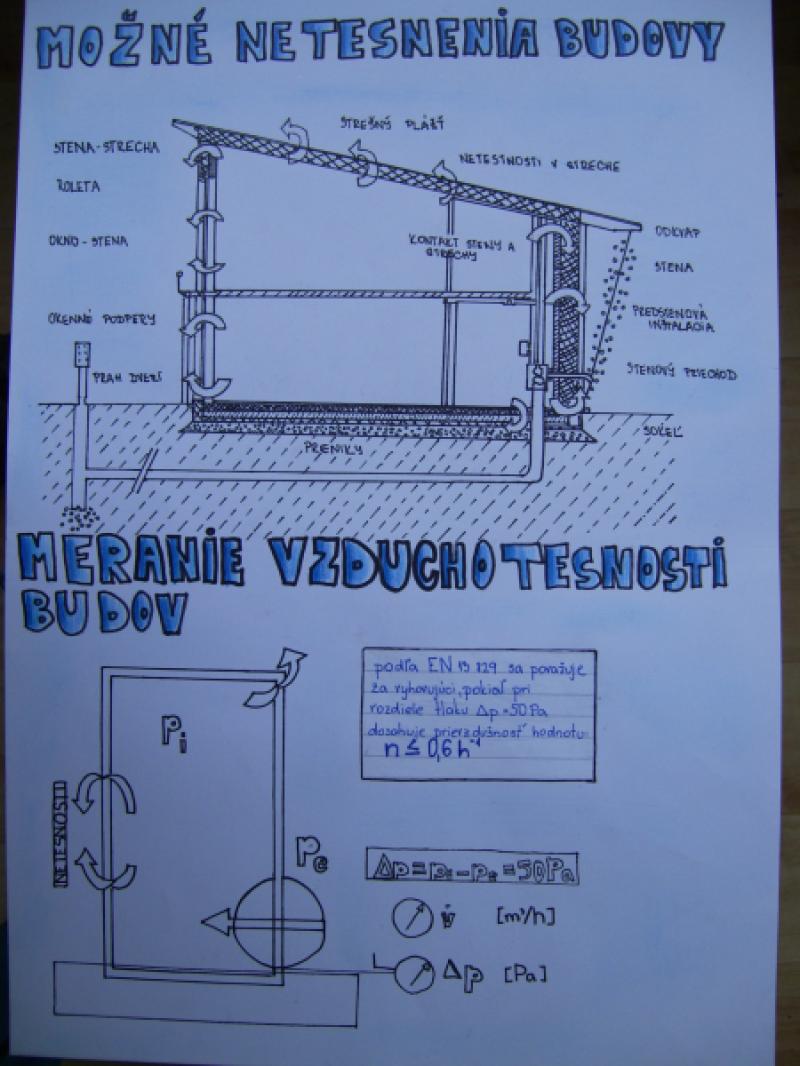 MOŽNÉ NETESNENIA BUDOVY
STREŠNÝ PLÁŠŤ
STENA-STRECHA
NETESTNOSTI V STRECHE
ROLETA
ODKVAP
OKNO-STENA
KONTAKT STENY A
STRECHY
STENA
OKENNÉ PODPERY
PREDSTENOVÁ
INŠTALÁCIA
PRAH DVERÍ
STENOVÝ PRIECHOD
SOKEĽ
PRENIKY
MERANIE VZDUCHOTESNOSTI
BUDOV
podľa EN 13 829 sa považuje
za vyhovujúci, pokiaľ pri
rozdiele tlaku Δp=50Pa
dosahuje prievzdušnosť hodnotu
n ≤ 0,6 h⁻¹
Pi
NETESNOSTI
Pe
Δp=pi-pe=50Pa
V̇ [m³/h]
Δp [Pa]